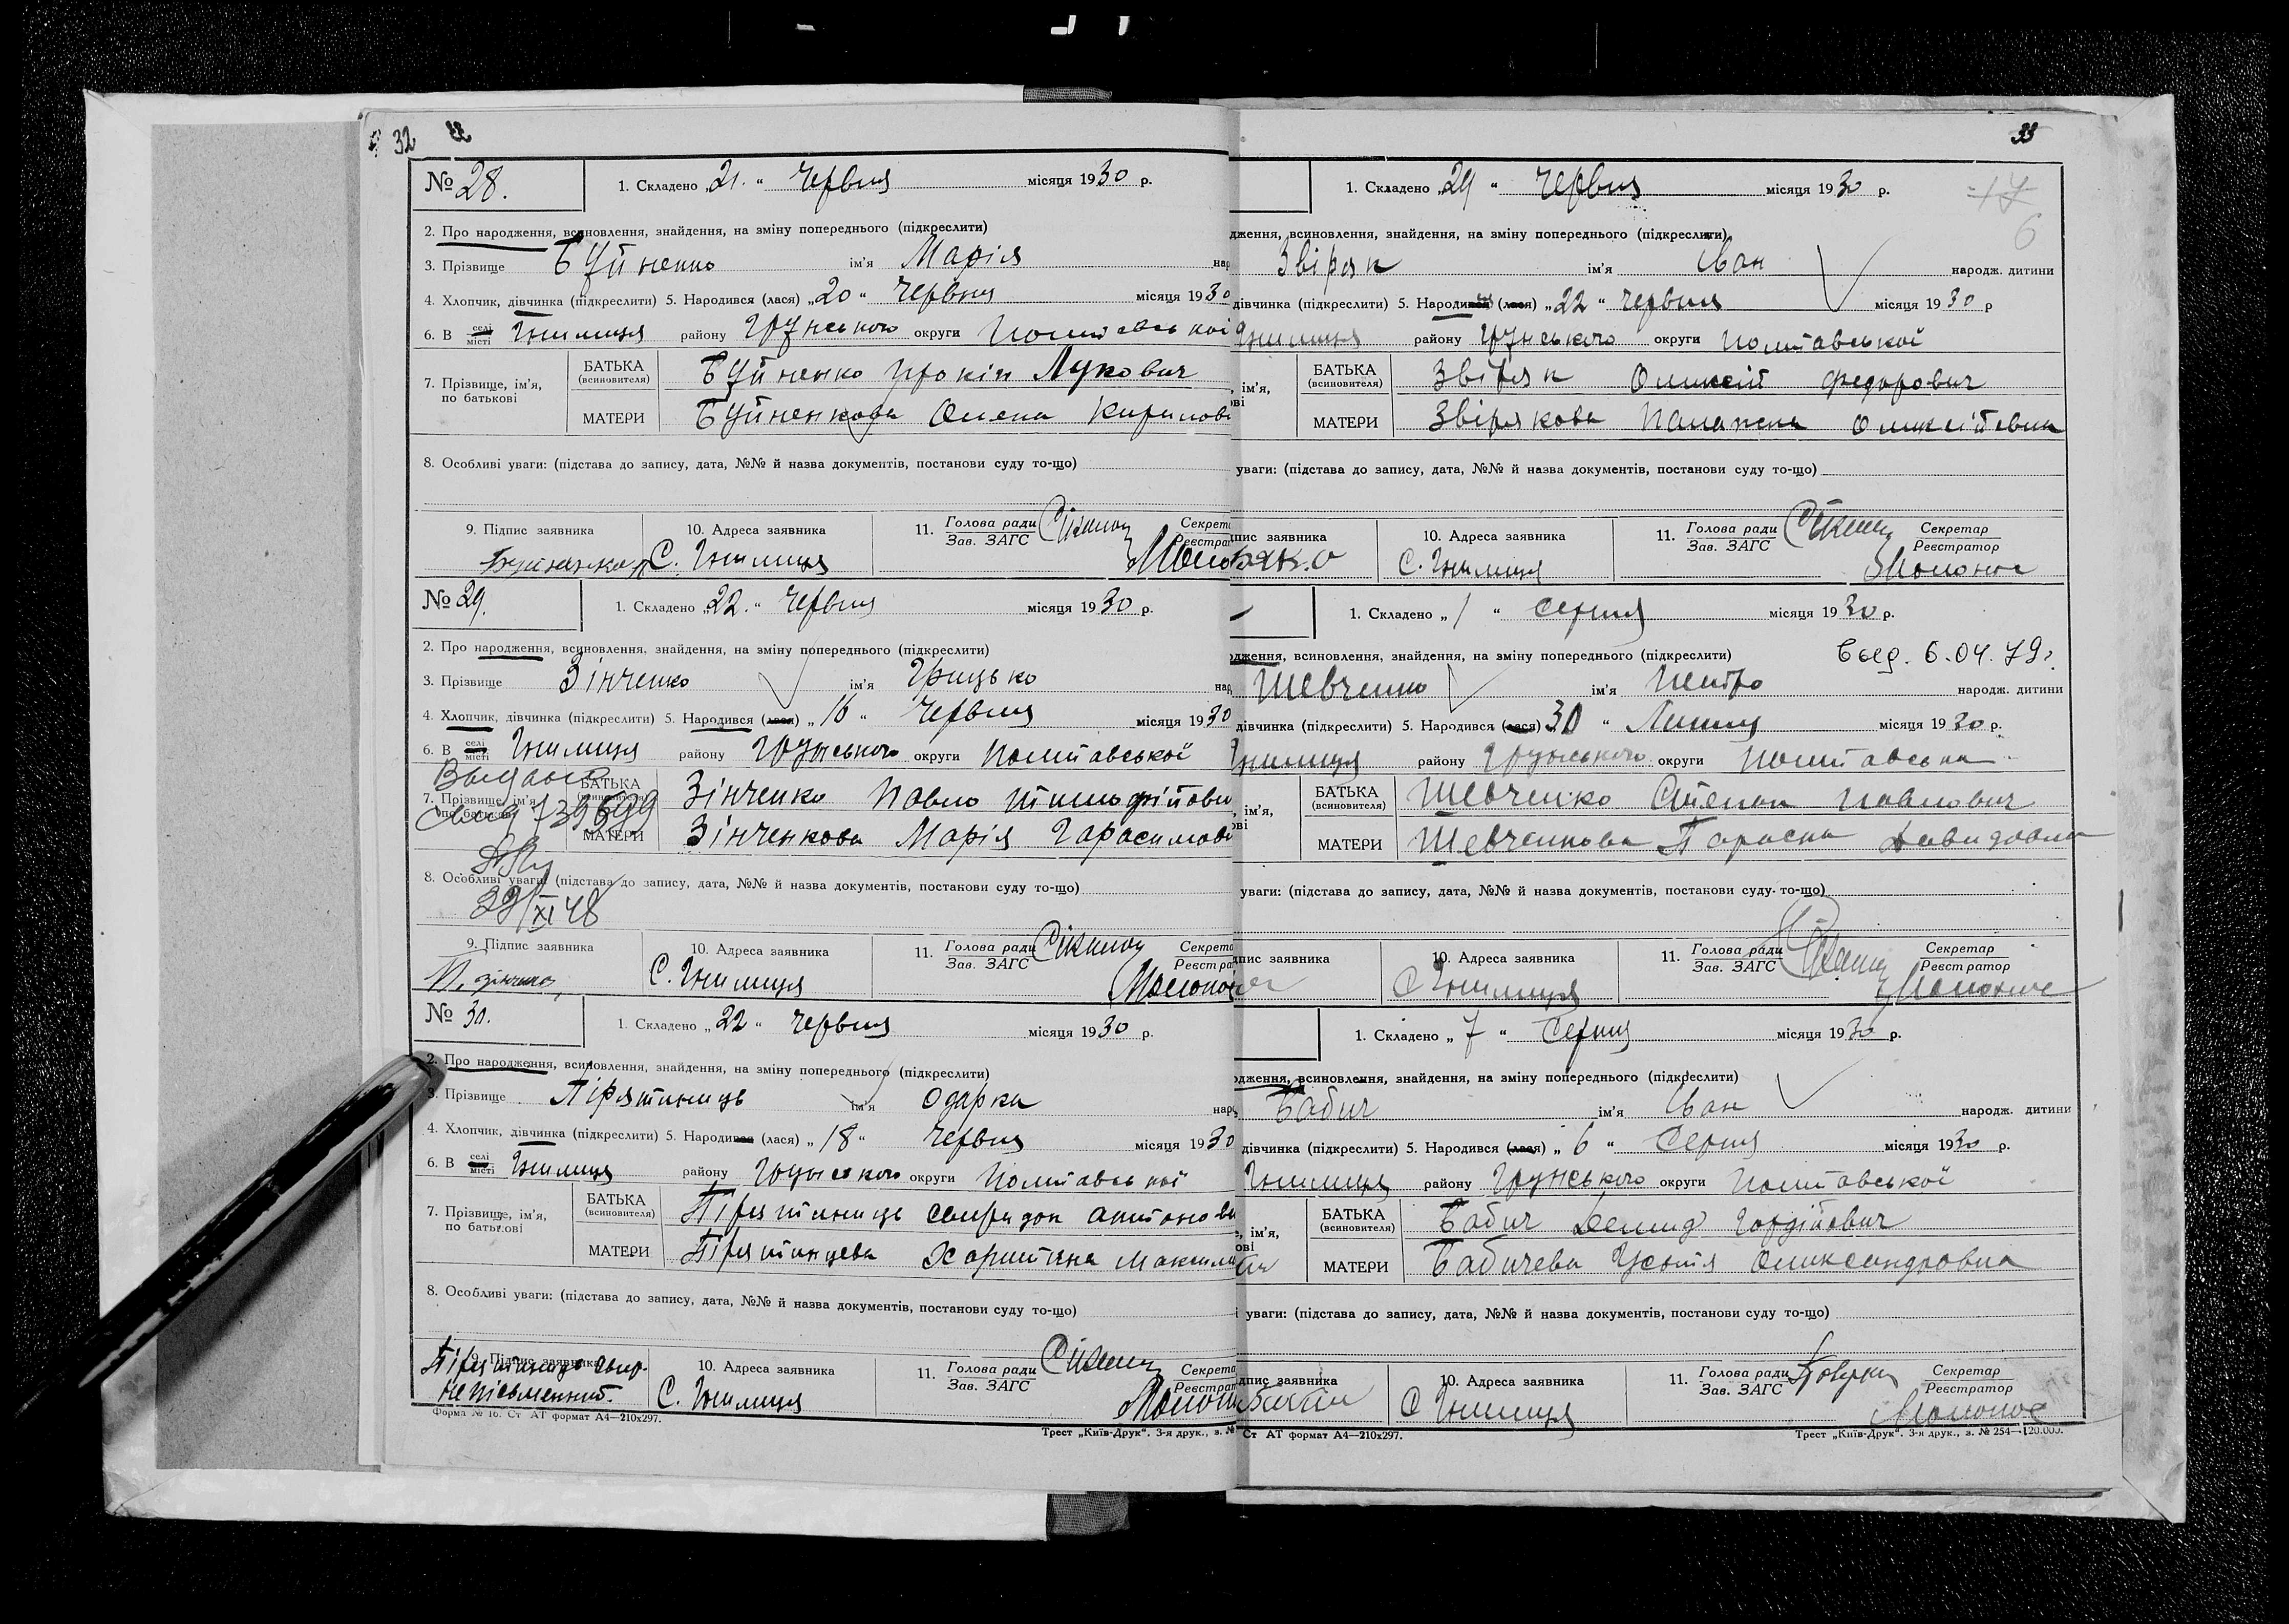 32
№ 28.
1. Складено „21.“ Червня місяця 1930 р.
2. Про народження, всиновлення, знайдення, на зміну попереднього (підкреслити)
3. Прізвище Буйненко ім'я Марія
4. Хлопчик, дівчинка (підкреслити) 5. Народився (лася) „20“ Червня місяця 1930
6. В селі місті Гнилиця району Грунського округи Полтавської
7. Прізвище, ім'я, по батькові
БАТЬКА (всиновителя) Буйненко Прокіп Лукович
МАТЕРИ Буйненкова Олена Кирилов
8. Особливі уваги: (підстава до запису, дата, №№ й назва документів, постанови суду то-що)
9. Підпис заявника 10. Адреса заявника 11. Голова ради Зав. ЗАГС
С. Гнилиця
№ 29.
1. Складено „22.“ Червня місяця 1930 р.
2. Про народження, всиновлення, знайдення, на зміну попереднього (підкреслити)
3. Прізвище Зінченко ім'я Грицько
4. Хлопчик, дівчинка (підкреслити) 5. Народився (лася) „16“ Червня місяця 1930
6. В селі місті Гнилиця району Грунського округи Полтавської
7. Прізвище, ім'я, по батькові
БАТЬКА (всиновителя) Зінченко Павло Тимофійови
МАТЕРИ Зінченкова Марія Гарасимов
8. Особливі уваги: (підстава до запису, дата, №№ й назва документів, постанови суду то-що)
9. Підпис заявника 10. Адреса заявника 11. Голова ради Зав. ЗАГС
П. Зінченко С. Гнилиця
№ 30.
1. Складено „22“ Червня місяця 1930 р.
2. Про народження, всиновлення, знайдення, на зміну попереднього (підкреслити)
3. Прізвище Пірятинець ім'я Одарка
4. Хлопчик, дівчинка (підкреслити) 5. Народився (лася) „18“ Червня місяця 1930
6. В селі місті Гнилиця району Грунського округи Полтавської
7. Прізвище, ім'я, по батькові
БАТЬКА (всиновителя) Пірятинець Свиридон Антонови
МАТЕРИ Пірятинцева Харитина Максим
8. Особливі уваги: (підстава до запису, дата, №№ й назва документів, постанови суду то-що)
9. Підпис заявника 10. Адреса заявника 11. Голова ради Зав. ЗАГС
Неписьменний. С. Гнилиця
Форма № 16. Ст АТ формат А4—210x297.
Трест „Київ-Друк“. 3-я друк., з. №
33
17
6
1. Складено „29“ Червня місяця 1930 р.
дження, всиновлення, знайдення, на зміну попереднього (підкреслити)
Звіряк ім'я Іван народж. дитини
дівчинка (підкреслити) 5. Народився (лася) „22“ Червня місяця 1930 р
Гнилиця району Грунського округи Полтавської
БАТЬКА (всиновителя) Звіряк Олексій Федорович
МАТЕРИ Звірякова Палажка Олексіївна
уваги: (підстава до запису, дата, №№ й назва документів, постанови суду то-що)
пис заявника 10. Адреса заявника 11. Голова ради Зав. ЗАГС Секретар Реєстратор
С. Гнилиця
1. Складено „1“ Серпня місяця 1930 р.
дження, всиновлення, знайдення, на зміну попереднього (підкреслити)
6.04.79г.
Шевченко ім'я Петро народж. дитини
дівчинка (підкреслити) 5. Народився (лася) 30“ Липня місяця 1930 р.
Гнилиця району Грунського округи Полтавська
БАТЬКА (всиновителя) Шевченко Степан Павлович
МАТЕРИ Шевченкова Параска Давидовна
уваги: (підстава до запису, дата, №№ й назва документів, постанови суду то-що)
пис заявника 10. Адреса заявника 11. Голова ради Зав. ЗАГС Секретар Реєстратор
С Гнилиця
1. Складено „7“ Серпня місяця 1930 р.
дження, всиновлення, знайдення, на зміну попереднього (підкреслити)
Бабич ім'я Іван народж. дитини
дівчинка (підкреслити) 5. Народився (лася) „6“ Серпня місяця 1930 р.
Гнилиця району Грунського округи Полтавської
БАТЬКА (всиновителя) Бабич Демид Гордійович
МАТЕРИ Бабичева Устя Олександровна
уваги: (підстава до запису, дата, №№ й назва документів, постанови суду то-що)
пис заявника 10. Адреса заявника 11. Голова ради Зав. ЗАГС Секретар Реєстратор
С Гнилиця
Ст АТ формат А4—210x297.
Трест „Київ-Друк“. 3-я друк., з. № 254—120.000.